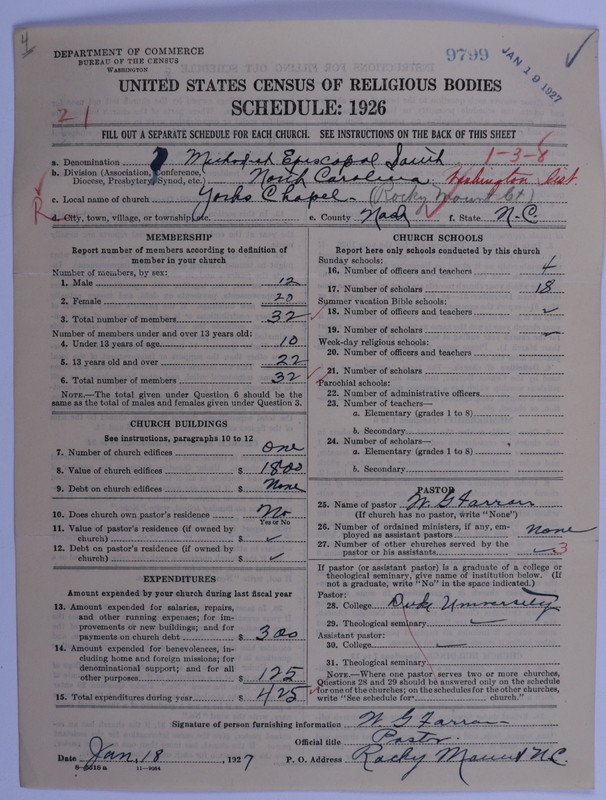 4
DEPARTMENT OF COMMERCE
BUREAU OF THE CENSUS
WASHINGTON
9799
JAN 19 1927
UNITED STATES CENSUS OF RELIGIOUS BODIES
SCHEDULE: 1926
21
FILL OUT A SEPARATE SCHEDULE FOR EACH CHURCH. SEE INSTRUCTIONS ON THE BACK OF THIS SHEET
a. Denomination Methodist Episcopal South 1-3-8
b. Division (Association, Conference, Diocese, Presbytery, Synod, etc.) North Carolina Washington Dist.
c. Local name of church Yorks Chapel (Rocky Mount Ct)
R
d. City, town, village, or township, etc. e. County Nash f. State N.C.
MEMBERSHIP
Report number of members according to definition of
member in your church
Number of members, by sex:
1. Male 12
2. Female 20
3. Total number of members 32
Number of members under and over 13 years old:
4. Under 13 years of age 10
5. 13 years old and over 22
6. Total number of members 32
NOTE.—The total given under Question 6 should be
same as the total of males and females given under Question 3.
CHURCH BUILDINGS
See instructions, paragraphs 10 to 12
7. Number of church edifices One
8. Value of church edifices $ 1800
9. Debt on church edifices $ None
10. Does church own pastor's residence? No
Yes or No
11. Value of pastor's residence (if owned by
church) $ ✓
12. Debt on pastor's residence (if owned by
church) $ ✓
EXPENDITURES
Amount expended by your church during last fiscal year
13. Amount expended for salaries, repairs,
and other running expenses; for im-
provements or new buildings; and for
payments on church debt $ 300
14. Amount expended for benevolences, in-
cluding home and foreign missions; for
denominational support; and for all
other purposes $ 125
15. Total expenditures during year $ 425
CHURCH SCHOOLS
Report here only schools conducted by this church
Sunday schools:
16. Number of officers and teachers 4
17. Number of scholars 18
Summer vacation Bible schools:
18. Number of officers and teachers ✓
19. Number of scholars
Week-day religious schools:
20. Number of officers and teachers
21. Number of scholars
Parochial schools:
22. Number of administrative officers
23. Number of teachers—
a. Elementary (grades 1 to 8)
b. Secondary
24. Number of scholars—
a. Elementary (grades 1 to 8)
b. Secondary
PASTOR
25. Name of pastor W. G. Farrar
(If church has no pastor, write "None")
26. Number of ordained ministers, if any, em-
ployed as assistant pastors None
27. Number of other churches served by the
pastor or his assistants 3
If pastor (or assistant pastor) is a graduate of a college or
theological seminary, give name of institution below. (If
not a graduate, write "No" in the space indicated.)
Pastor:
28. College Duke University
29. Theological seminary
Assistant pastor:
30. College
31. Theological seminary
NOTE.—Where one pastor serves two or more churches,
Questions 28 and 29 should be answered only on the schedule
for one of the churches; on the schedules for the other churches,
write "See schedule for church."
Signature of person furnishing information W. G. Farrar
Official title Pastor
Date Jan. 18, 1927 P. O. Address Rocky Mount N.C.
11—9064